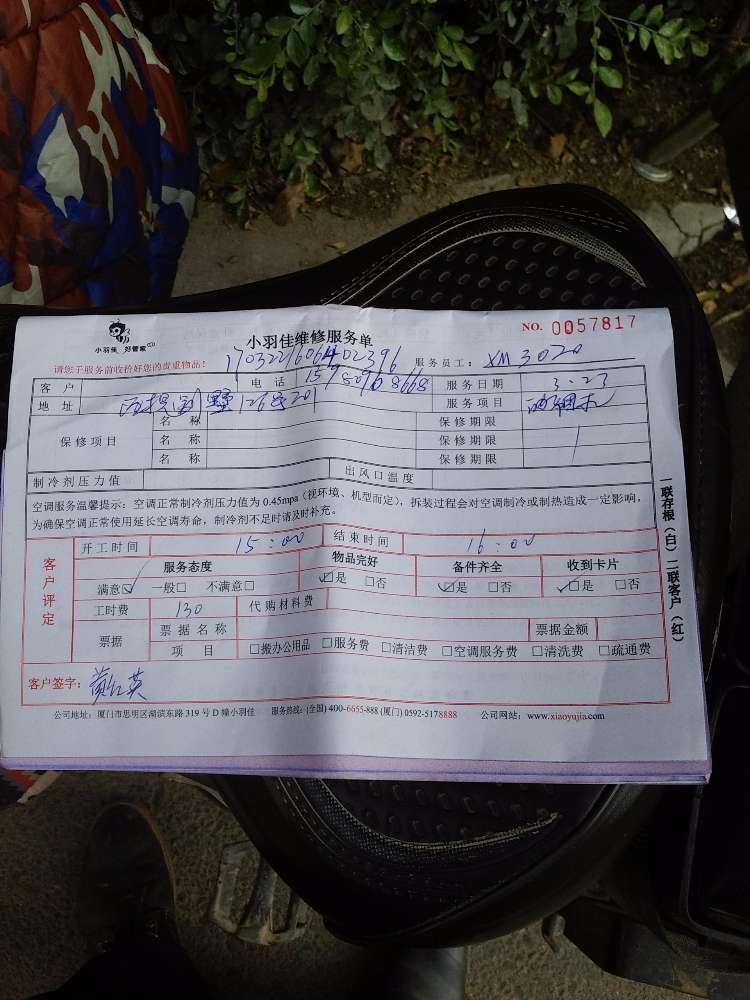 小羽佳 好管家
小羽佳维修服务单
NO. 0057817
请您于服务前收拾好您的贵重物品！
服务员工： XM 3020
客 户 电 话 15980908668 服务日期 3.23
地 址 126号201 服务项目 油烟机
保修项目
名 称 保修期限
名 称 保修期限
名 称 保修期限
制冷剂压力值 出风口温度
空调服务温馨提示：空调正常制冷剂压力值为 0.45mpa（视环境、机型而定），拆装过程会对空调制冷或制热造成一定影响，
为确保空调正常使用延长空调寿命，制冷剂不足时请及时补充。
客户评定
开工时间 15:00 结束时间 16:00
服务态度 物品完好 备件齐全 收到卡片
满意☑ 一般□ 不满意□ ☑是 □否 ☑是 □否 ☑是 □否
工时费 130 代购材料费
票据 票据名称 票据金额
项 目 □搬办公用品 □服务费 □清洁费 □空调服务费 □清洗费 □疏通费
客户签字： 黄红英
公司地址：厦门市思明区湖滨东路 319 号 D 幢小羽佳 服务热线：(全国) 400-6655-888 (厦门) 0592-5178888 公司网站：www.xiaoyujia.com
一联存根（白）二联客户（红）